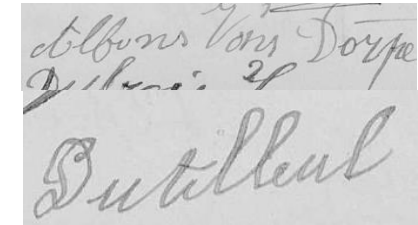 Alfons Van Dorpe
Dutilleul